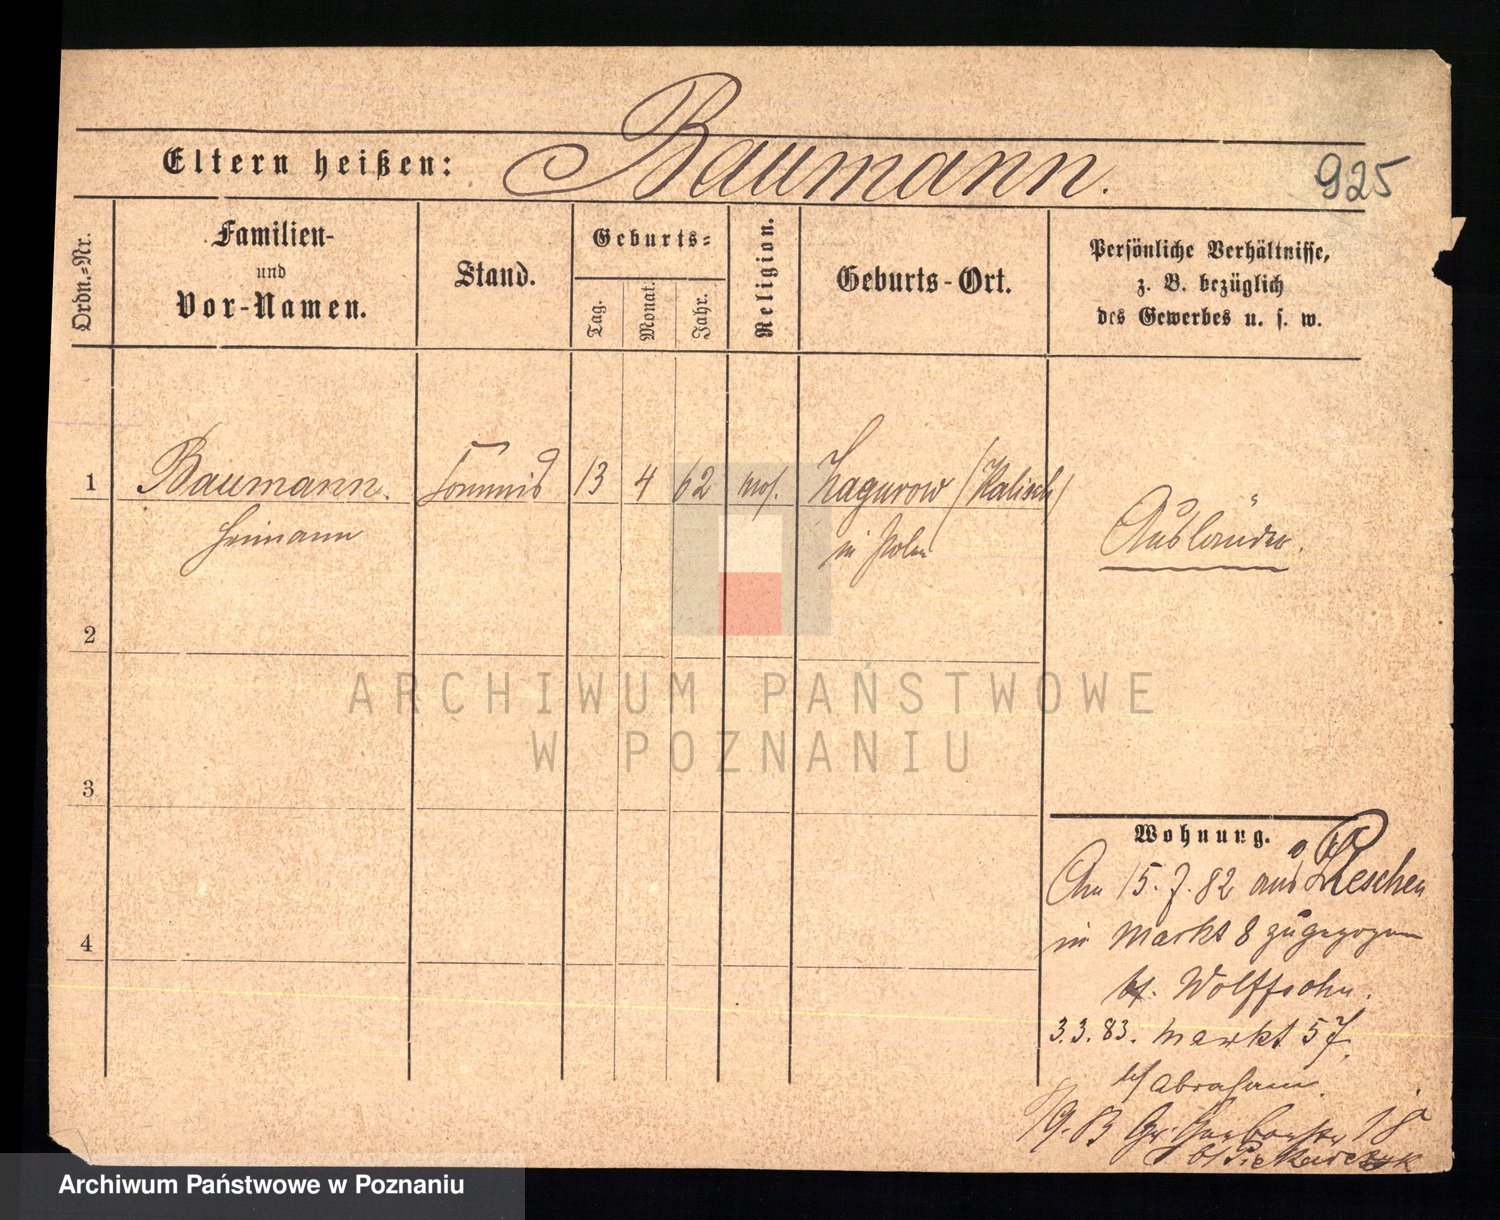 Eltern heißen: Baumann.
925
Ordn.-Nr.
Familien-
und
Vor-Namen.
Stand.
Geburts-
Tag.
Monat.
Jahr.
Religion.
Geburts-Ort.
Persönliche Verhältnisse,
z. B. bezüglich
des Gewerbes u. s. w.
1 Baumann. Commis 13 4 62 mos. Zagurow (Kalisch)
Heimann in Polen
Ausländer.
2
3
4
ARCHIWUM PAŃSTWOWE
W POZNANIU
Wohnung.
Am 15.7.82 aus Pleschen
in Markt 8 zugezogen
bei Wolffsohn.
3.3.83. Markt 57.
bei Abraham.
Gr. 18
Archiwum Państwowe w Poznaniu